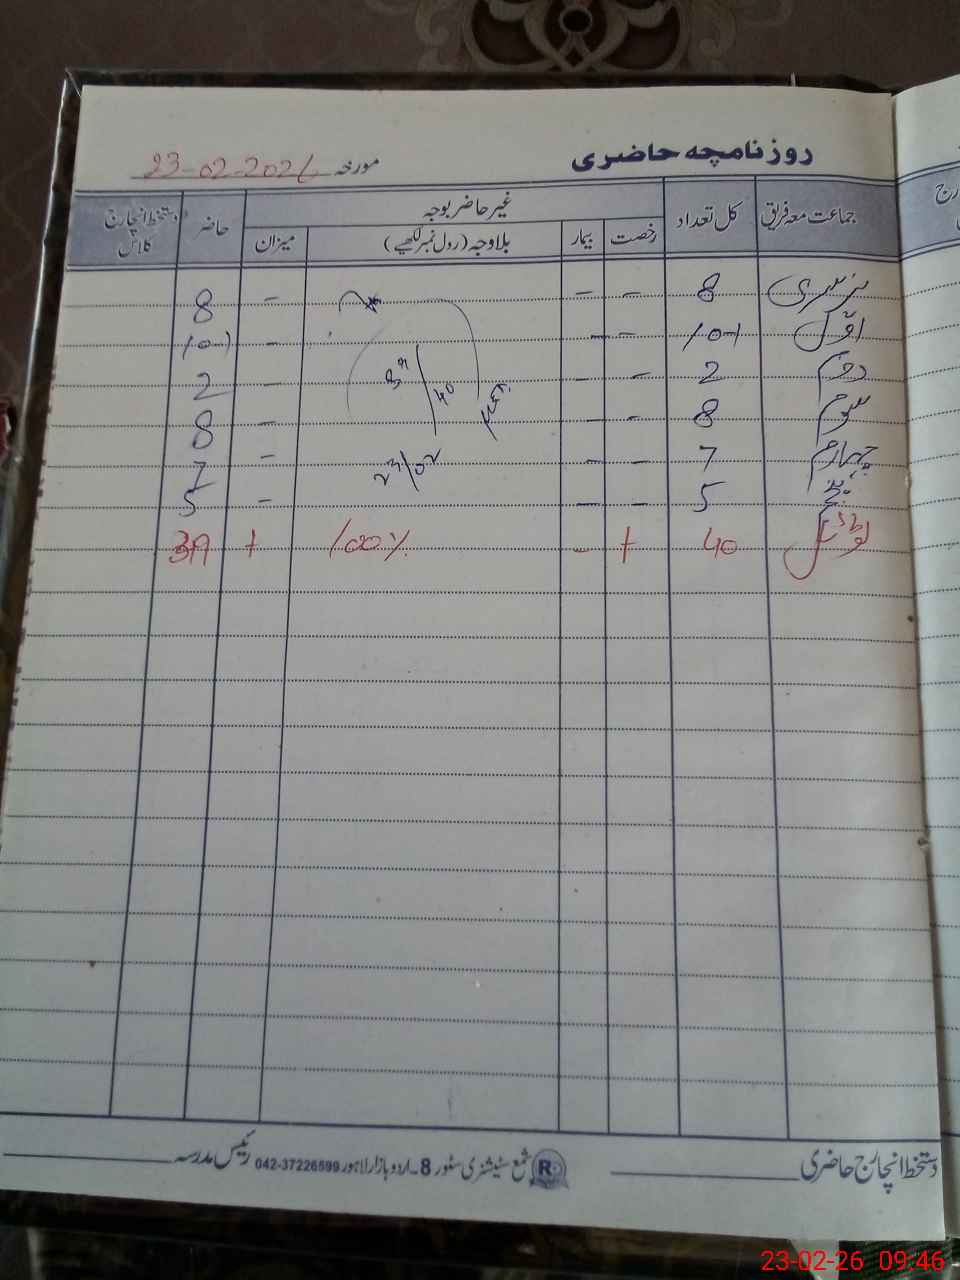 روزنامچہ حاضری
مورخہ 23-02-2026
جماعت معہ فریق کل تعداد غیر حاضر بوجہ حاضر دستخط انچارج کلاس
رخصت بیمار بلاوجہ (رول نمبر لکھیے) میزان
نرسری 8 - - - 8
اوّل 10 - - - 10
دوم 2 - - - 2
سوم 8 - - - 8
چہارم 7 - - - 7
پنجم 5 - - - 5
39/40
23/02
ٹوٹل 40 + - 100% + 39
دستخط انچارج حاضری
شمع سٹیشنری سٹور 8-اردو بازار لاہور 042-37226599
رئیس مدرسہ
23-02-26 09:46